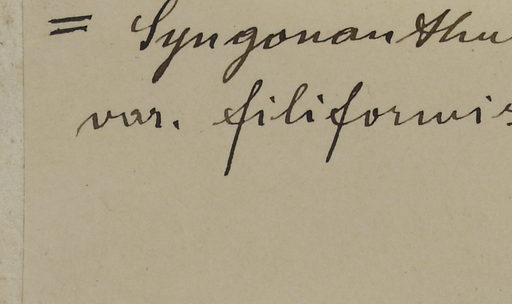 = Syngonanthu
var. filiformis